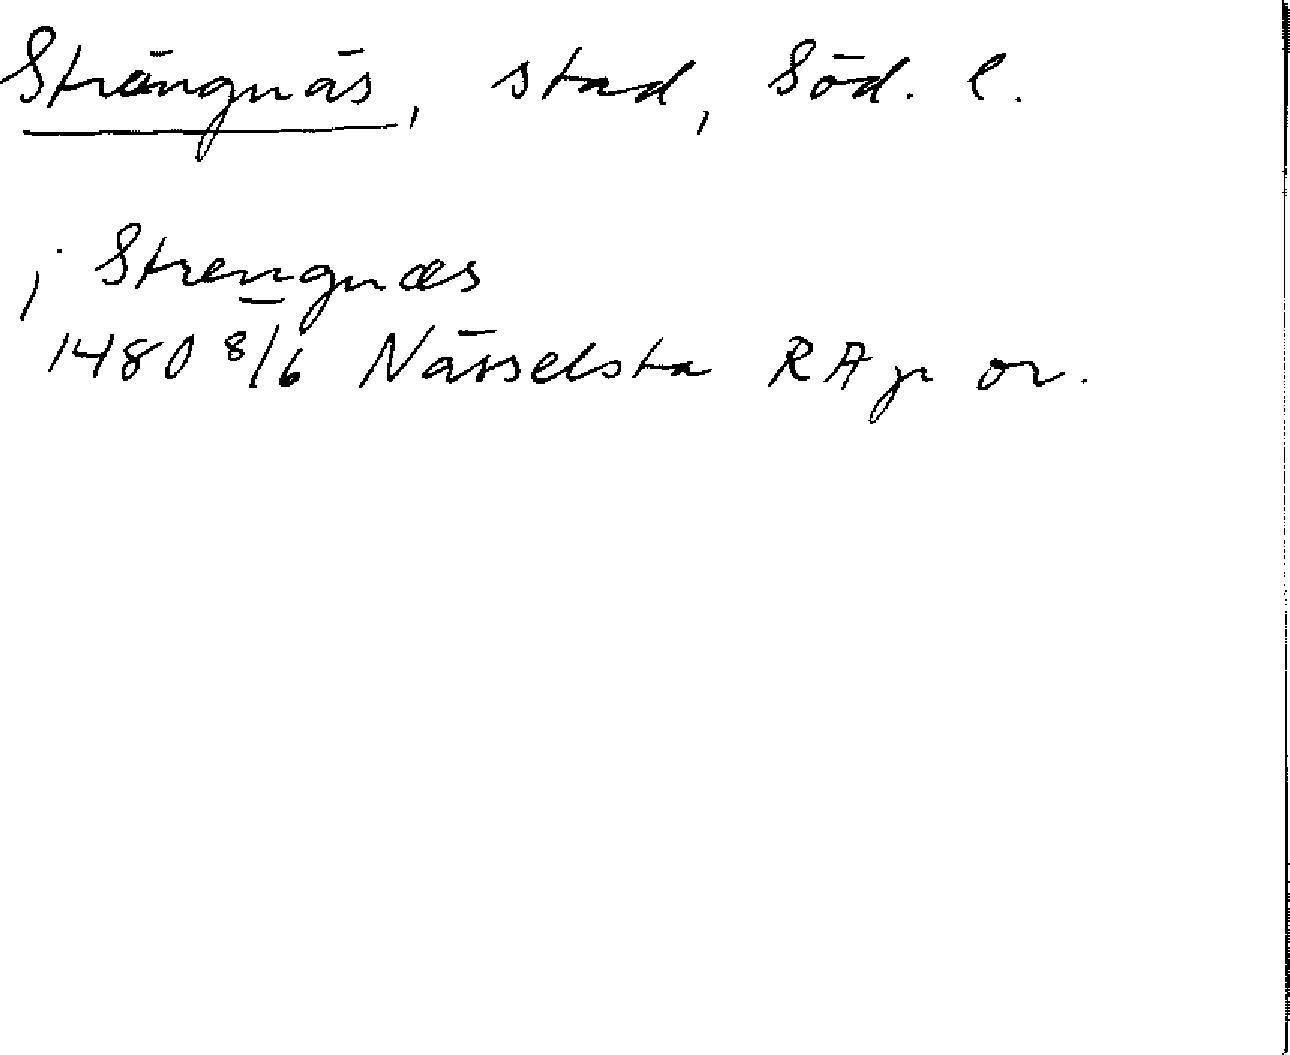 Strängnäs, stad, Söd. l.
j Strengnæs
1480 8/6 Nässelsta RA p or.